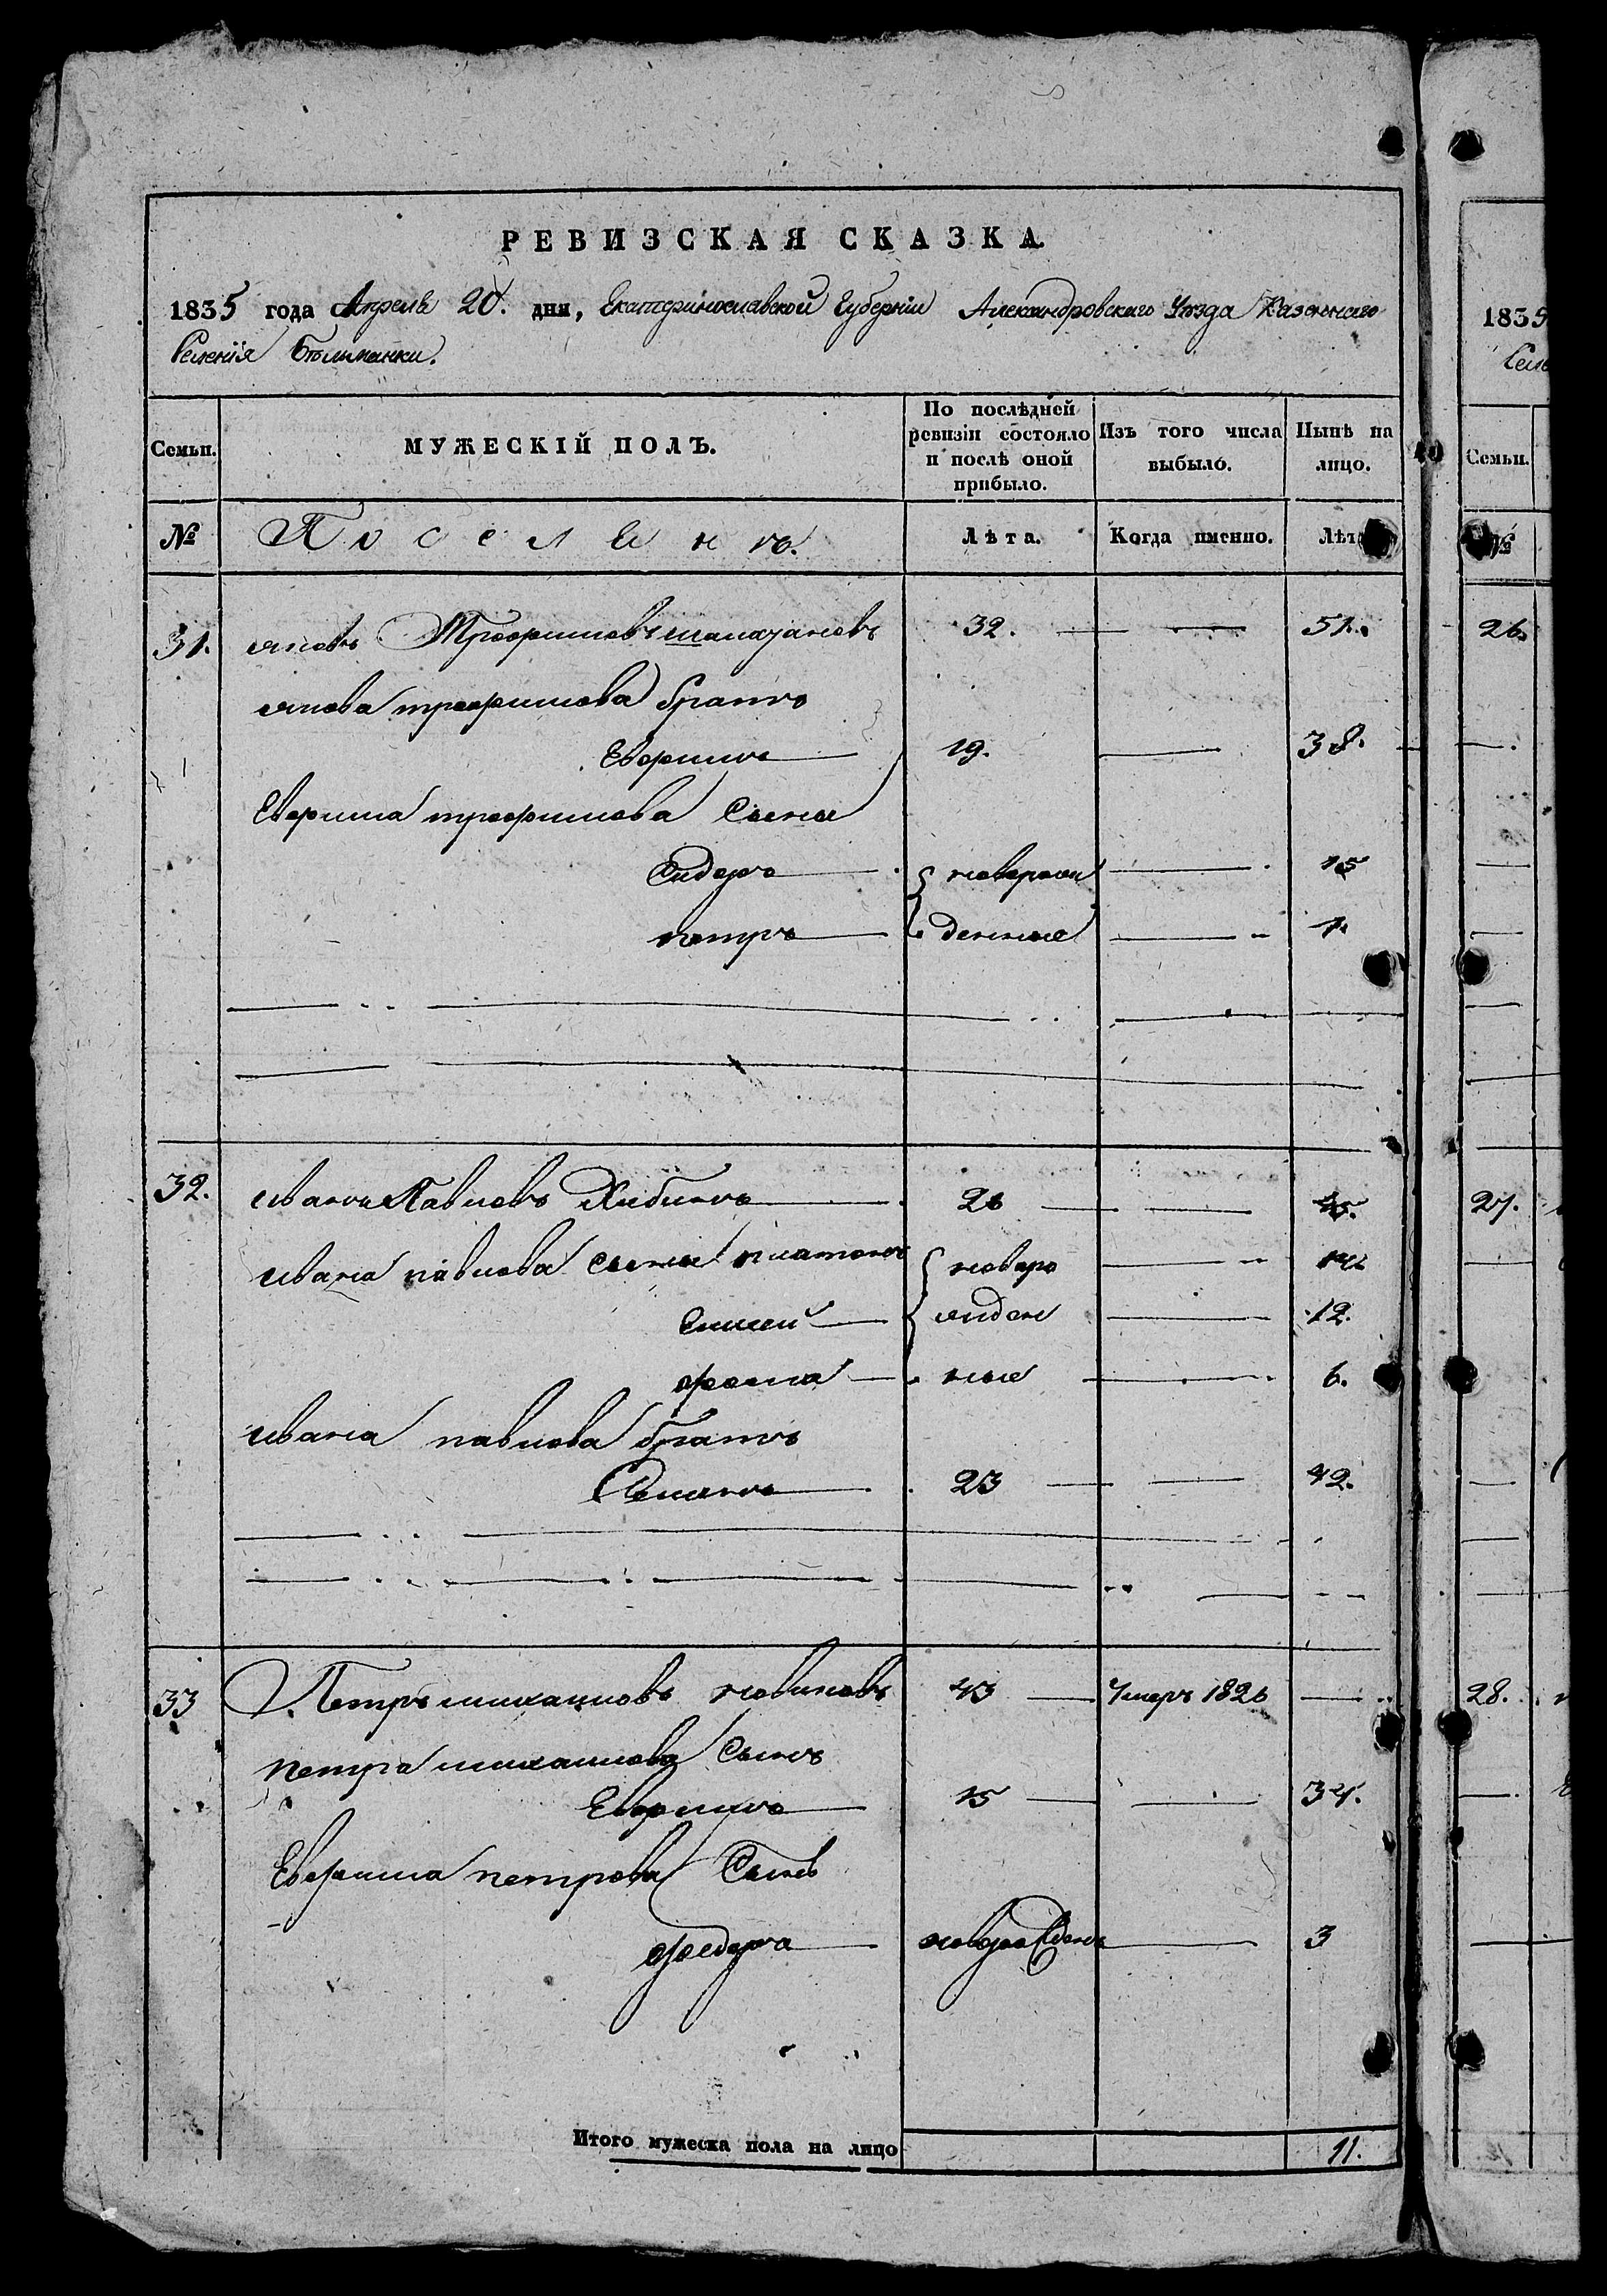 РЕВИЗСКАЯ СКАЗКА.
1835 года Апреля 20. дня, Екатеринославской Губернiи Александровского Уезда Казенного
Селенiя Белманки.
Семьи. МУЖЕСКІЙ ПОЛЪ. По послѣдней ревизіи состояло и послѣ оной прибыло. Изъ того числа выбыло. Нынѣ на лицо.
№ Поселянъ. Лѣта. Когда именно. Лѣта
31. яковъ Трофимовъ 32. 51.
якова трофимова братъ
Ефимъ 19. 38.
Ефима трофимова Сыны
Сидоръ новорож 15
петръ денные 1.
32. иванъ Павловъ Хибинъ 26 45.
ивана павлова сыны платонъ новоро
Елисей жден 12.
фома ные 6.
ивана павлова братъ
Семенъ 23 42.
33 Петръ михаиловъ новиковъ 43 Умеръ 1826
петра михаилова Сынъ
Ефимъ 15 34.
Ефима петрова Сынъ
федоръ новорожденъ 3
Итого мужеска пола на лицо 11.
1835
Семьи.
№
26.
27.
28.